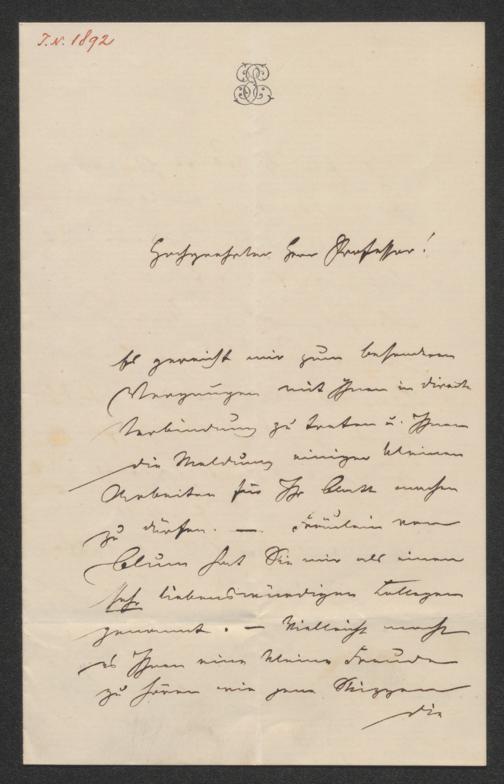 I.N. 1892
Hochgeehrter Herr Professor!
Es gereicht mir zum besonderen
Vergnügen mit Ihnen in directe
Verbindung zu treten u. Ihnen
die Meldung einiger kleinen
Arbeiten für Ihr Blatt machen
zu dürfen. — Fräulein von
Blum hat Sie mir als einen
sehr liebenswürdigen Collegen
genannt. — Vielleicht macht
es Ihnen eine kleine Freude
zu hören wie jene Skizzen
die